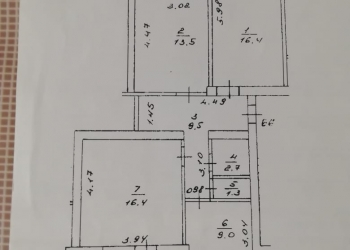 3.02
5.98
4.47
2
13.5
1
16.4
4.49
1.45
3
9.5
4
2.7
3.10
4.17
7
16.4
5
1.3
098
6
9.0
3.04
3.94